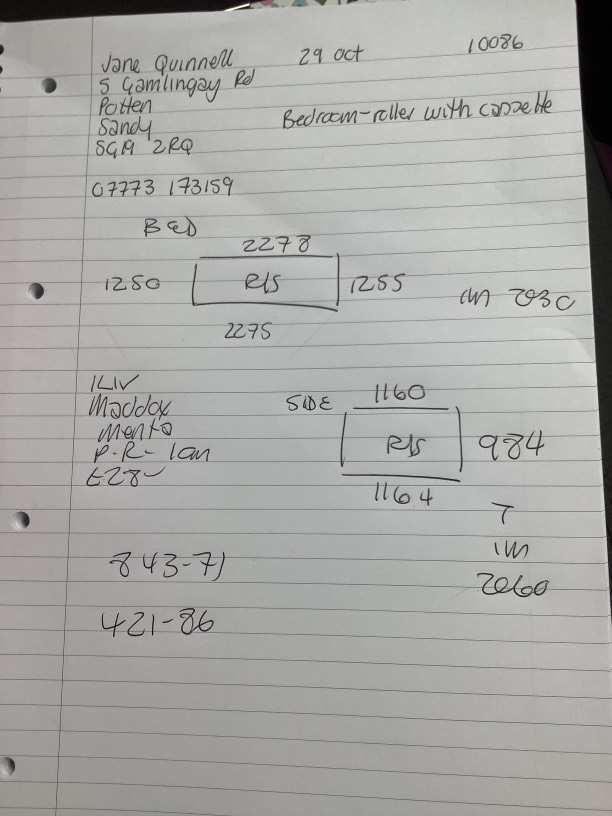 Jane Quinnell 29 oct 10086
5 Gamlingay Rd
Potten
Sandy
Bedroom-roller with cassette
SG19 2RQ
07773 173159
BED
2278
1250 R/S 1255
2275
SIDE 1160
Maddox
R/S 984
P.R-
1164
843-71
2060
421-86